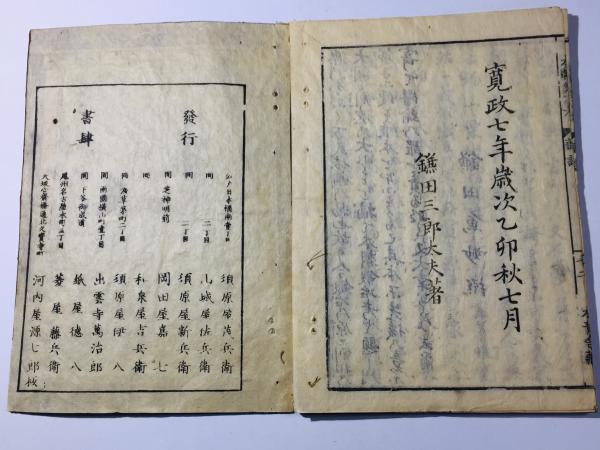 寛政七年歳次乙卯秋七月
鐮田三郎太夫著
發行
書肆
江戸日本橋南壹丁目 須原屋茂兵衛
同 二丁目 山城屋佐兵衛
同 二丁目 須原屋新兵衛
同 芝神明前 岡田屋嘉七
同 和泉屋吉兵衛
同 淺草茅町二丁目 須原屋伊八
同 兩國横山町壹丁目 出雲寺萬治郎
同 下谷御成道 紙屋徳八
尾州名古屋本町 菱屋藤兵衛
大坂心齋橋通北久寳寺町 河内屋源七郎板